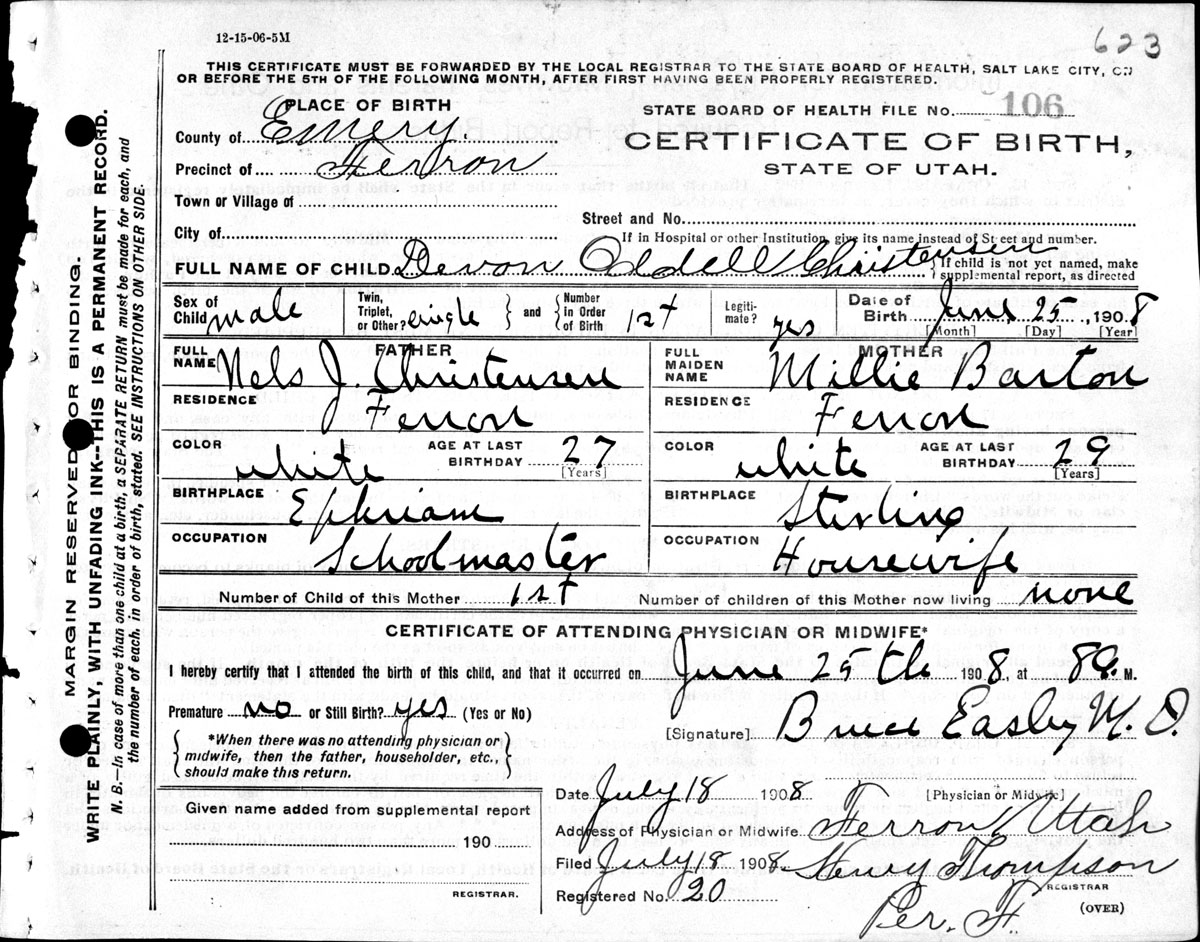 12-15-06-5M
623
THIS CERTIFICATE MUST BE FORWARDED BY THE LOCAL REGISTRAR TO THE STATE BOARD OF HEALTH, SALT LAKE CITY, ON
OR BEFORE THE 5TH OF THE FOLLOWING MONTH, AFTER FIRST HAVING BEEN PROPERLY REGISTERED.
PLACE OF BIRTH
County of Emery.
Precinct of Ferron
Town or Village of
City of
STATE BOARD OF HEALTH FILE NO. 106
CERTIFICATE OF BIRTH,
STATE OF UTAH.
Street and No.
If in Hospital or other Institution, give its name instead of Street and number.
FULL NAME OF CHILD. Devon Oddell Christensen { If child is not yet named, make supplemental report, as directed
Sex of Child male
Twin, Triplet, or Other? single } and { Number in Order of Birth 1st
Legitimate? yes
Date of Birth June 25, 1908
[Month] [Day] [Year]
FATHER
FULL NAME Nels J. Christensen
RESIDENCE Ferron
COLOR white AGE AT LAST BIRTHDAY 27 [Years]
BIRTHPLACE Ephriam
OCCUPATION Schoolmaster
MOTHER
FULL MAIDEN NAME Millie Barton
RESIDENCE Ferron
COLOR white AGE AT LAST BIRTHDAY 29 [Years]
BIRTHPLACE Sterling
OCCUPATION Housewife
Number of Child of this Mother 1st Number of children of this Mother now living none
CERTIFICATE OF ATTENDING PHYSICIAN OR MIDWIFE*
I hereby certify that I attended the birth of this child, and that it occurred on June 25th 1908, at 8 a. M.
Premature no or Still Birth? yes (Yes or No)
{ *When there was no attending physician or midwife, then the father, householder, etc., should make this return. }
[Signature] Bruce Easley M.D.
[Physician or Midwife]
Given name added from supplemental report
190
REGISTRAR.
Date July 18 1908.
Address of Physician or Midwife Ferron, Utah
Filed July 18 1908 Henry Thompson
REGISTRAR
Registered No. 20
Per. F.
(OVER)
MARGIN RESERVED FOR BINDING.
WRITE PLAINLY, WITH UNFADING INK--THIS IS A PERMANENT RECORD.
N. B.—In case of more than one child at a birth, a SEPARATE RETURN must be made for each, and
the number of each, in order of birth, stated. SEE INSTRUCTIONS ON OTHER SIDE.